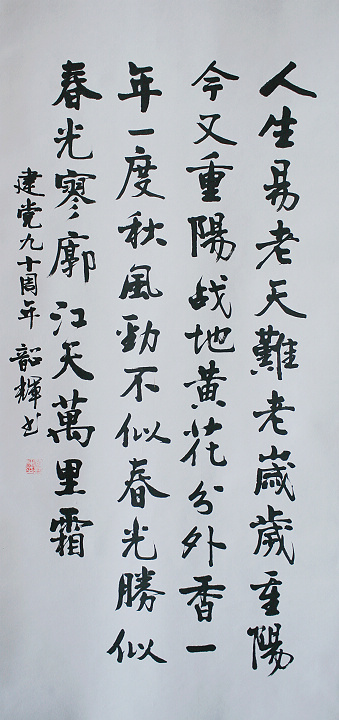 人生易老天難老歲歲重陽
今又重陽战地黄花分外香一
年一度秋風勁不似春光勝似
春光寥廓江天萬里霜
建党九十周年 韶輝书